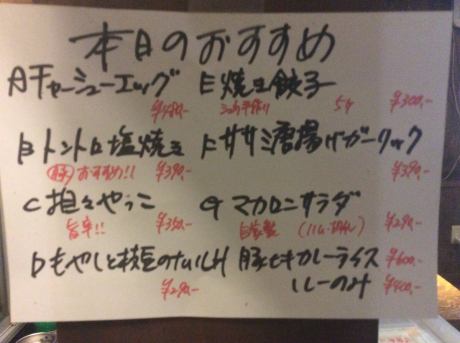 本日のおすすめ
Aチャーシューエッグ
¥480,-
Bトントロ塩焼き
おすすめ!! ¥390,-
C担々やっこ
旨辛!! ¥350,-
Dもやしと枝豆のナムル
¥290,-
E焼き餃子
5ヶ ¥300,-
Fササミ唐揚げガーリック
¥390,-
Gマカロニサラダ
自家製 ¥290,-
H豚モモカレーライス ¥600,-
ルーのみ ¥400,-